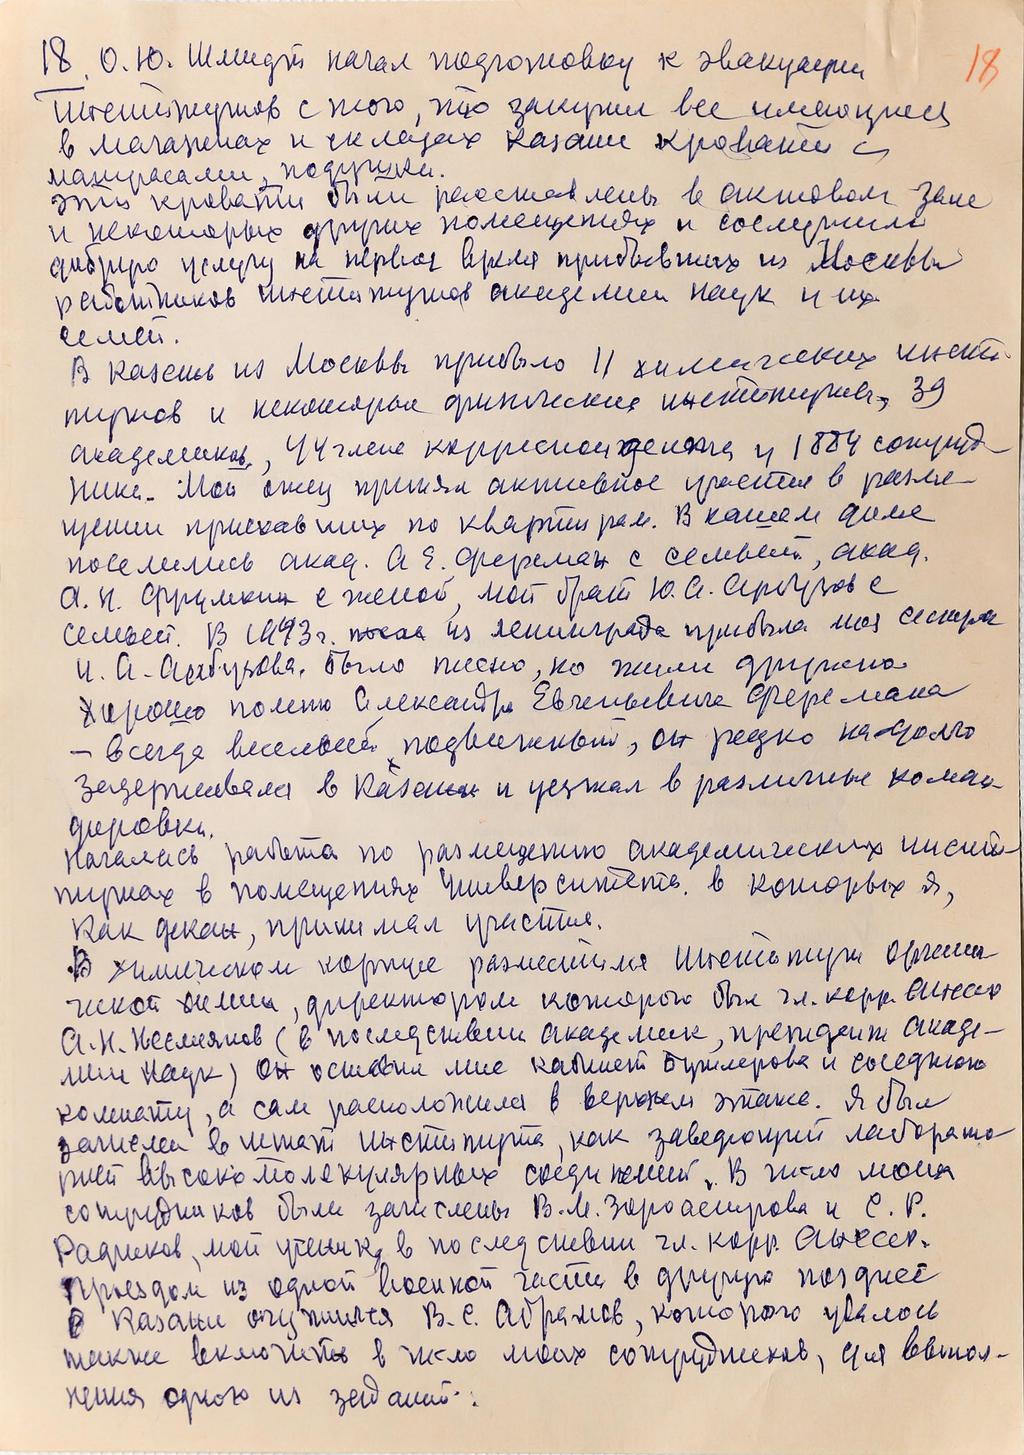 18. О.Ю. Шмидт начал подготовку к эвакуации 18
Институтов с того, что закупил все имеющиеся
в магазинах и складах Казани кровати с
матрасами, подушки.
Эти кровати были расставлены в актовом зале
и некоторых других помещениях и сослужили
добрую услугу на первое время прибывших из Москвы
работников институтов академии наук и их
семей.
В Казань из Москвы прибыло 11 химических инсти-
тутов и некоторые физические институты, 39
академиков, 44 члена корреспондента и 1884 сотруд-
ника. Мой отец принял активное участие в разме-
щении приехавших по квартирам. В нашем доме
поселились акад. А.Е. Ферсман с семьей, акад.
А.Н. Фрумкин с женой, мой брат Ю.А. Арбузов с
семьей. В 1943 г. из Ленинграда прибыла моя сестра
И.А. Арбузова. Было тесно, но жили дружно.
Хорошо помню Александра Евгеньевича Ферсмана
– всегда веселый, подвижный, он редко надолго
задерживался в Казани и уезжал в различные коман-
дировки.
Началась работа по размещению академических инсти-
тутах в помещениях Университета. в которых я,
как декан, принимал участия.
В химическом корпусе разместился Институт органи-
ческой химии, директором которого был чл. корр. АН СССР
А.Н. Несмеянов (в последствии академик, президент Акаде-
мии Наук) Он оставил мне кабинет Бутлерова и соседнюю
комнату, а сам расположился в верхнем этаже. Я был
зачислен в штат института, как заведующий лаборато-
рией высокомолекулярных соединений. В число моих
сотрудников были зачислены В.М. Зороастрова и С.Р.
Рафиков, мой ученик, в последствии чл. корр. АН СССР.
Проездом из одной военной части в другую позднее
в Казани очутился В.С. Абрамов, которого удалось
также включить в число моих сотрудников, для выпол-
нения одного из заданий.